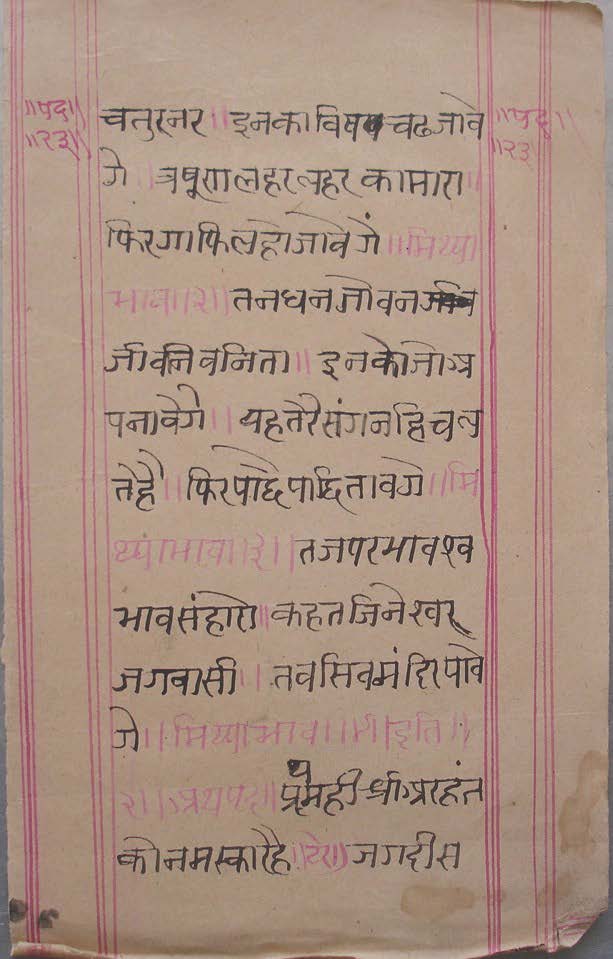 ॥पद॥
॥२३॥
चतुरनर ॥ इनका विष चढ जावे
गे ॥ लहर लहर का मारा ॥
फिर गाफिल हो जावेगें ॥ मिथ्या
भाव ॥२॥ तन धन जोवन
जीवन वनिता ॥ इनको जो अ
पनावेगे ॥ यह तेरै संग नहि चल
ते है ॥ फिर पाछै पछितावगे ॥ मि
थ्याभाव ॥३॥ तज परभाव स्व
भाव संहारो ॥ कहत जिनेस्वर
जगवासी ॥ तव सिवमंदिर पावे
गे ॥ मिथ्याभाव ॥४॥ इति ॥
अथपद ॥ प्रथमही श्रीअरहंत
को नमस्कार है ॥टेर॥ जगदीस
॥पद॥
॥२३